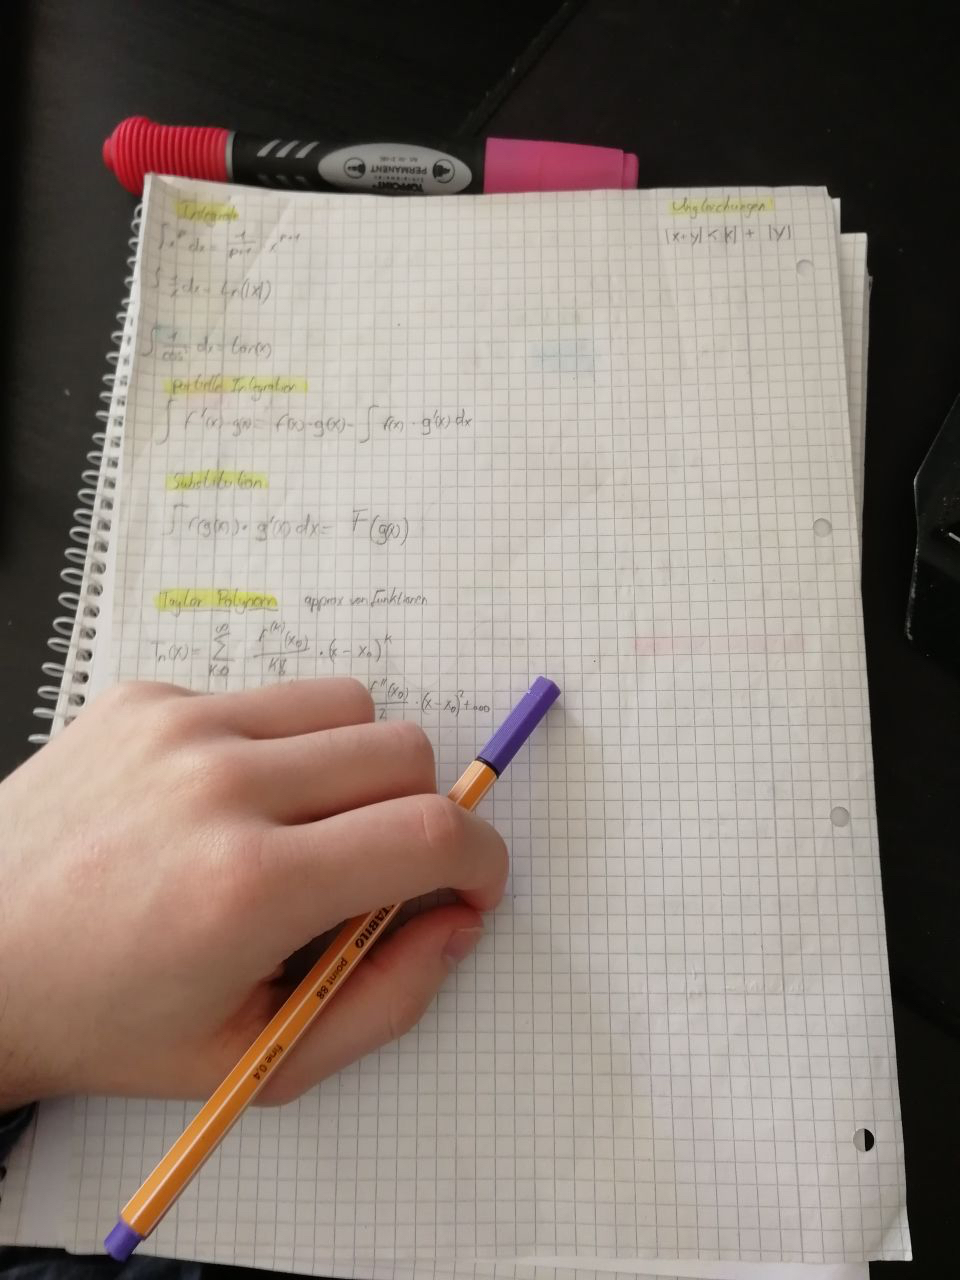 TOPPOINT
PERMANENT
Integrale
Ungleichungen
∫ x^p dx = 1/(p+1) · x^(p+1)
|x+y| < |x| + |y|
∫ 1/x dx = Ln(|x|)
∫ 1/cos² dx = tan(x)
partielle Integration
∫ f'(x)·g(x) = f(x)·g(x) - ∫ f(x) · g'(x) dx
Substitution
∫ f(g(x)) · g'(x) dx = F(g(x))
Taylor Polynom approx von Funktionen
Tn(x) = ∑ k=0 ∞ f^(k)(x₀)/k! · (x - x₀)^k
f''(x₀)/2 · (x - x₀)² + ...
STABILO
point 88
fine 0,4